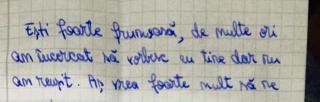 Ești foarte frumoasă, de multe ori
am încercat să vorbesc cu tine dar nu
am reușit. Aș vrea foarte mult să ne